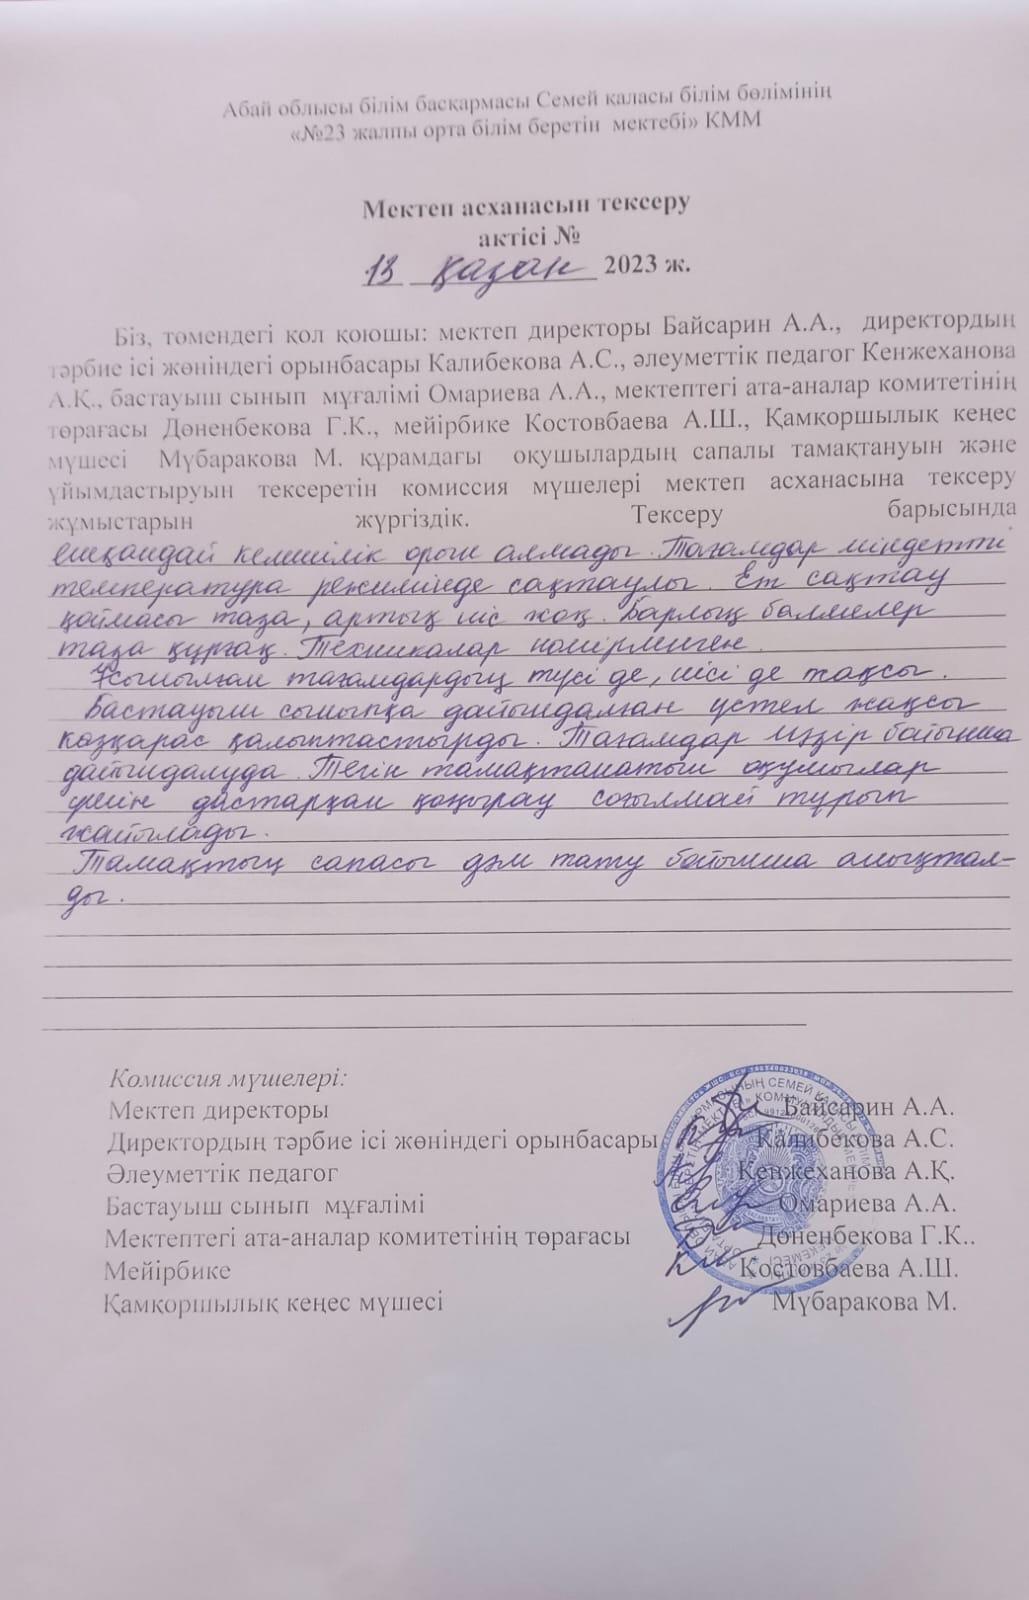 Абай облысы білім басқармасы Семей қаласы білім бөлімінің
«№23 жалпы орта білім беретін мектебі» КММ
Мектеп асханасын тексеру
актісі №
13 қазан 2023 ж.
Біз, төмендегі қол қоюшы: мектеп директоры Байсарин А.А., директордың
тәрбие ісі жөніндегі орынбасары Калибекова А.С., әлеуметтік педагог Кенжеханова
А.Қ., бастауыш сынып мұғалімі Омариева А.А., мектептегі ата-аналар комитетінің
төрағасы Дөненбекова Г.К., мейірбике Костовбаева А.Ш., Қамқоршылық кеңес
мүшесі Мүбаракова М. құрамдағы оқушылардың сапалы тамақтануын және
ұйымдастыруын тексеретін комиссия мүшелері мектеп асханасына тексеру
жұмыстарын жүргіздік. Тексеру барысында
ешқандай кемшілік орын алмады. Тағамдар міндетті
температура режимінде сақтаулы. Ет сақтау
қоймасы таза, артық иіс жоқ. Барлық бөлмелер
таза құрғақ. Техникалар
Ұсынылған тағамдардың түсі де, иісі де жақсы.
Бастауыш сыныпқа дайындалған үстел жақсы
көзқарас қалыптастырды. Тағамдар мәзір бойынша
дайындалуда. Тегін тамақтанатын оқушылар
үшін дастарқан қоңырау соғылмай тұрып
жайылады.
Тамақтың сапасы дәм тату бойынша анықтал-
ды.
Комиссия мүшелері:
Мектеп директоры Байсарин А.А.
Директордың тәрбие ісі жөніндегі орынбасары Калибекова А.С.
Әлеуметтік педагог Кенжеханова А.Қ.
Бастауыш сынып мұғалімі Омариева А.А.
Мектептегі ата-аналар комитетінің төрағасы Дөненбекова Г.К..
Мейірбике Костовбаева А.Ш.
Қамқоршылық кеңес мүшесі Мүбаракова М.